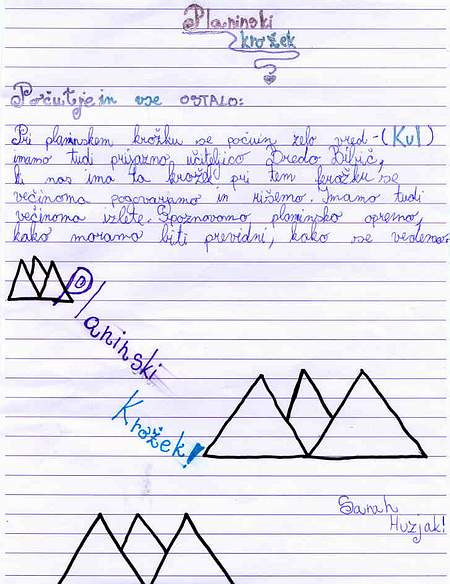 Planinski
krožek
Počutje in vse OSTALO:
Pri planinskem krožku se počutim zelo vred-(Kul)
imamo tudi prijazno učiteljico
ki nas ima ta krožek pri tem krožku se
večinoma pogovarjamo in rišemo. Imamo tudi
večinoma izlite. Spoznavamo planinsko opremo,
kako moramo biti previdni, kako se vedemo.
Planinski
Krožek!
Sarah
Huzjak!